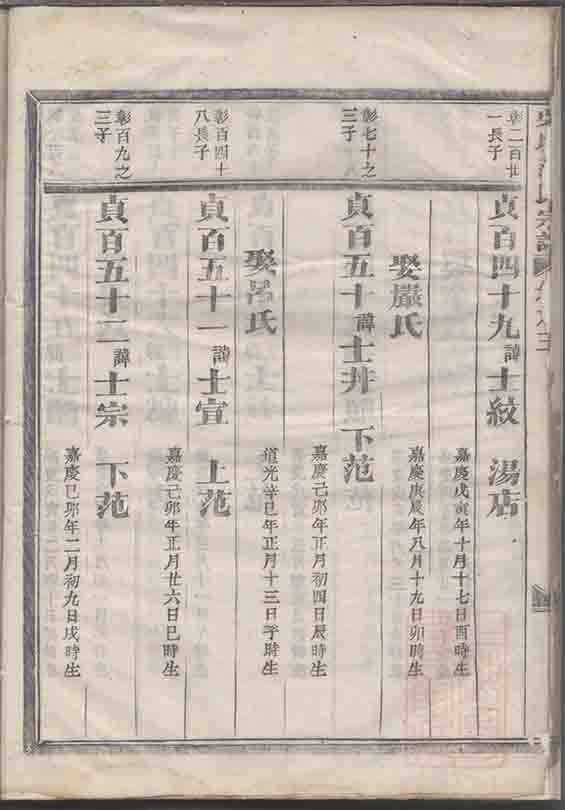 彰二百廿
一長子
貞百四十九諱士紋 湯店
嘉慶戊寅年十月十七日酉時生
娶嚴氏
嘉慶庚辰年八月十九日卯時生
彰七十之
三子
貞百五十諱士井 下范
嘉慶己卯年正月初四日辰時生
娶呂氏
道光辛巳年正月十三日子時生
彰百四十
八長子
貞百五十一諱士宣 上范
嘉慶己卯年正月廿六日巳時生
彰百九之
三子
貞百五十二諱士宗 下范
嘉慶己卯年二月初九日戌時生